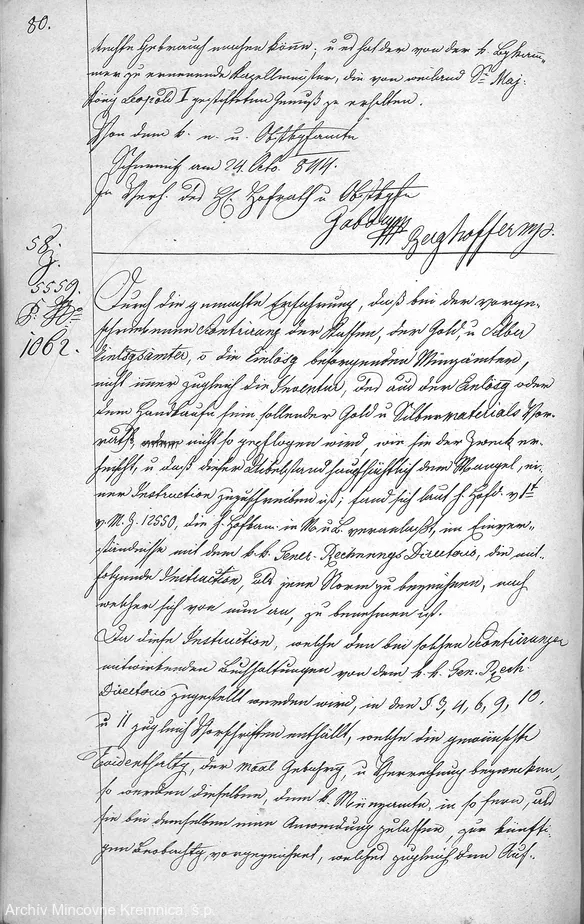 80.
Gebrauch machen könne; u es hat der von der k. Bgkam„
mer zu ernennende Kapellmeister, die von weiland Sr Maj.
König Leopold I gestifteten Genuß zu erhalten.
Von dem k. n. u. Obstkgfamte
Schemnitz am 24 Octo. 844.
In Verh. des H. Hofrath u Obstkgfn
Gabdryan Berghoffer mp.
58.
Z.
5559.
1062.
Durch die gemachte Erfahrung, daß bei der vorge„
schriebenen Contrirung der Kassen, der Gold, u Silber
Einlösgsämter, o die Einlösg besorgenden Münzämter,
nicht immer zugleich die Inventur, des aus der Einlösg oder
dem Handkaufe sein sollender Gold u Silbermaterials Vor„
raths, nicht so gepflogen wird, wie sie der Zweck er„
heischt, u daß dieser Uibelstand hauptsächlich dem Mangel, ei„
ner Instruction zuzuschreiben ist; fand sich laut h. Hofd. v 1t
v. M. Z. 12550, die h. Hofkam. in M u B. veranlaßt, im Einver„
ständnisse mit dem k. k. Gener. Rechnungs Directorio, die mit„
folgende Instruction, als jene Norm zu bezeichnen, nach
welcher sich von nun an, zu benehmen ist.
Da diese Instruction, welche den bei solchen Contrirungen
mitwirkenden Buchhaltungen von dem k. k. Gen. Rech.
Directorio zugestellt werden wird, in den § 3, 4, 6, 9, 10.
u 11 zugleich Vorschriften enthällt, welche die gewünschte
Evidenthaltg, der Maal Gebahrg, u Verrechng bezwecken,
so werden dieselben, dem k. Münzamte, in so fern, als
sie bei demselben eine Anwendung zulassen, zur künfti„
gen Beobachtg, vorgezeichnet, welches zugleich den Auf„
Archív Mincovne Kremnica, š.p.